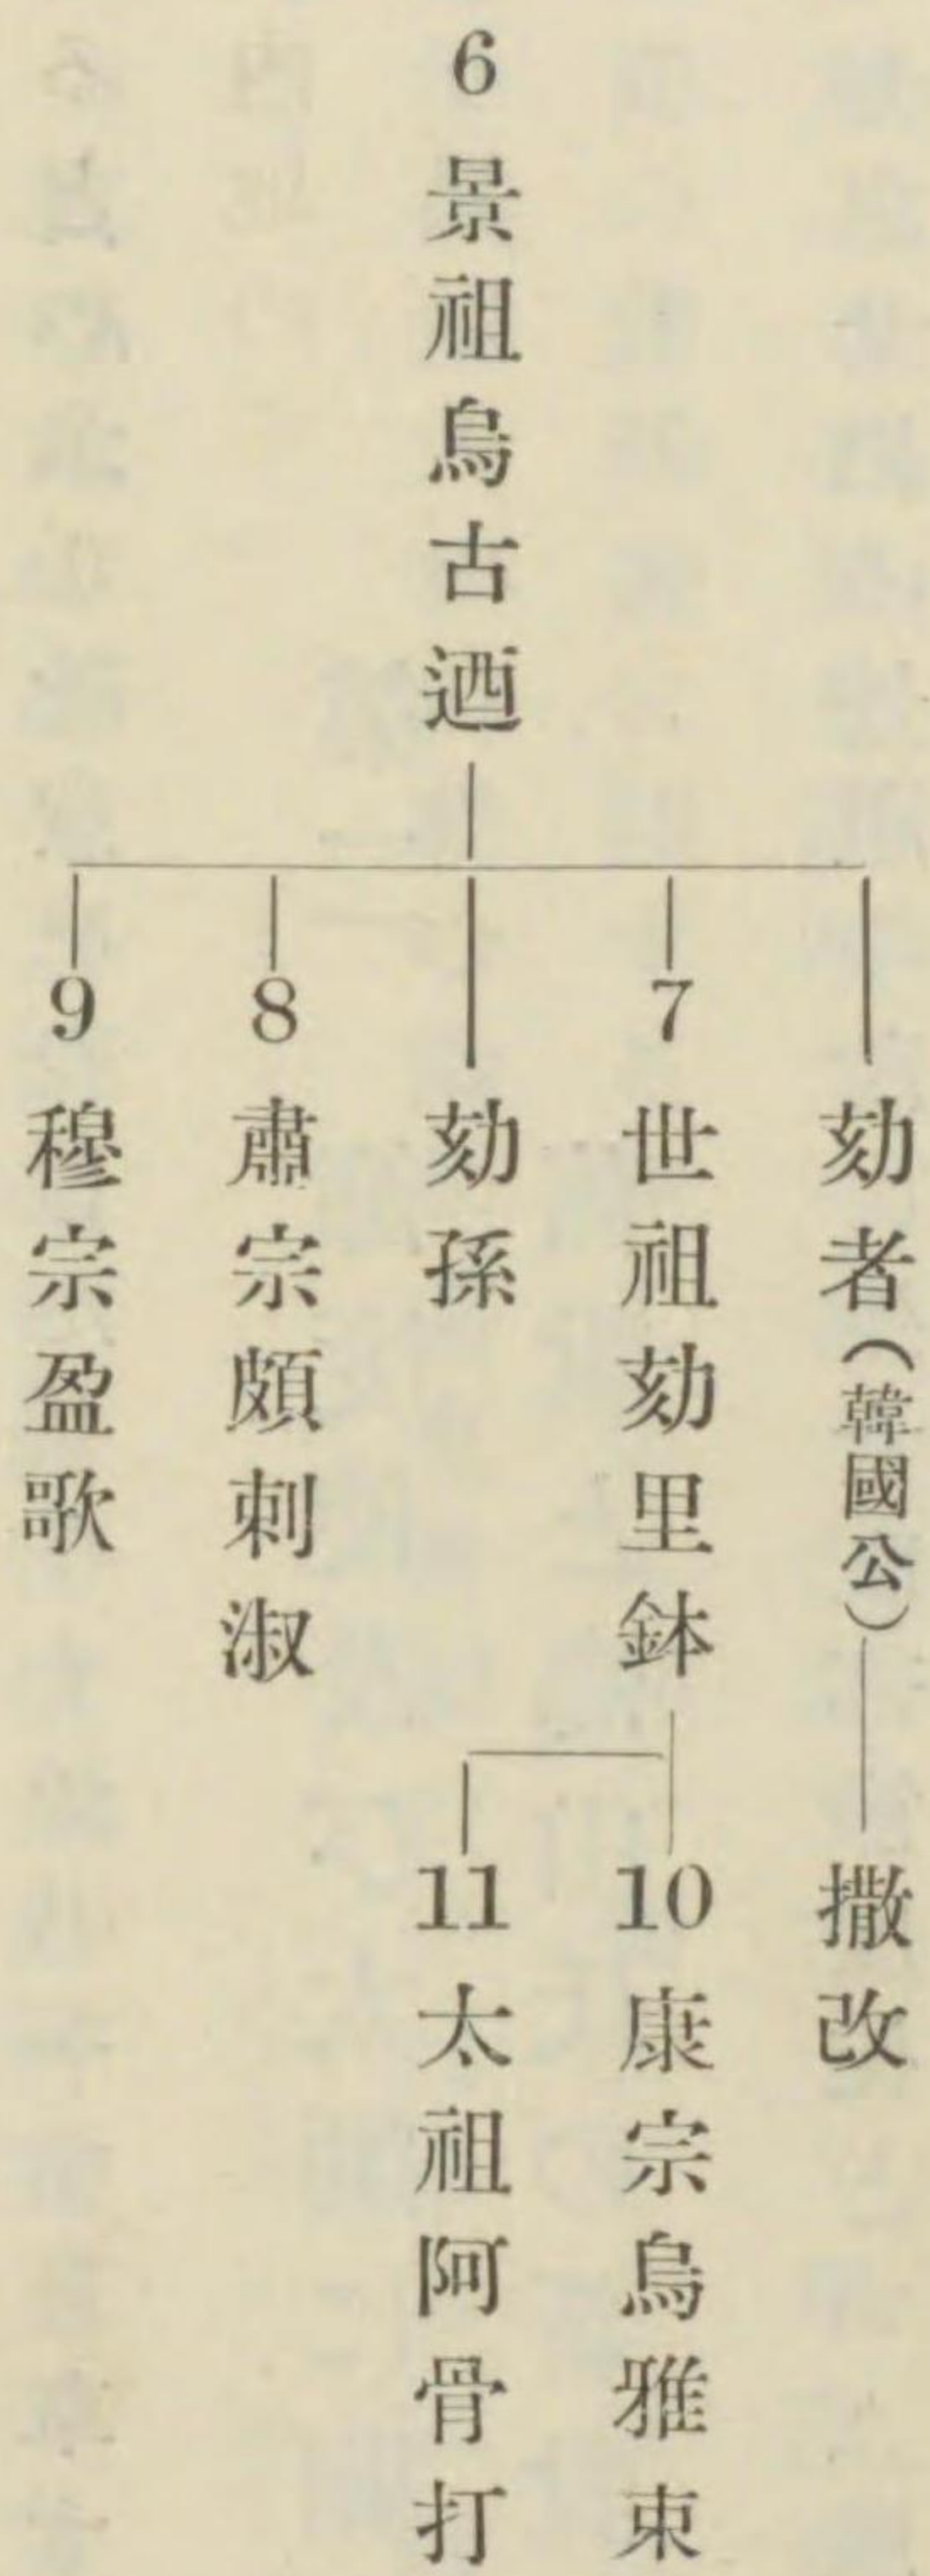 6 景祖烏古迺
劾者(韓國公)
撒改
7 世祖劾里鉢
10 康宗烏雅束
11 太祖阿骨打
劾孫
8 肅宗頗刺淑
9 穆宗盈歌